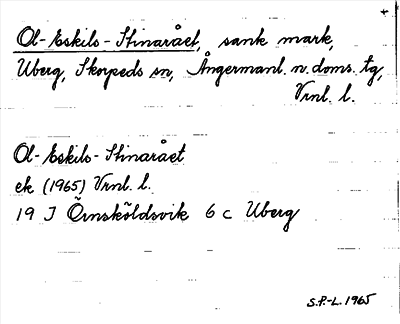 Ol-Eskils-Stinarået, sank mark,
Uberg, Skorpeds sn, Ångermanl. n. doms. tg,
Vrnl. l.
Ol-Eskils-Stinarået
ek (1965) Vrnl. l.
19 J Örnsköldsvik 6 c Uberg
S.P.-L. 1965